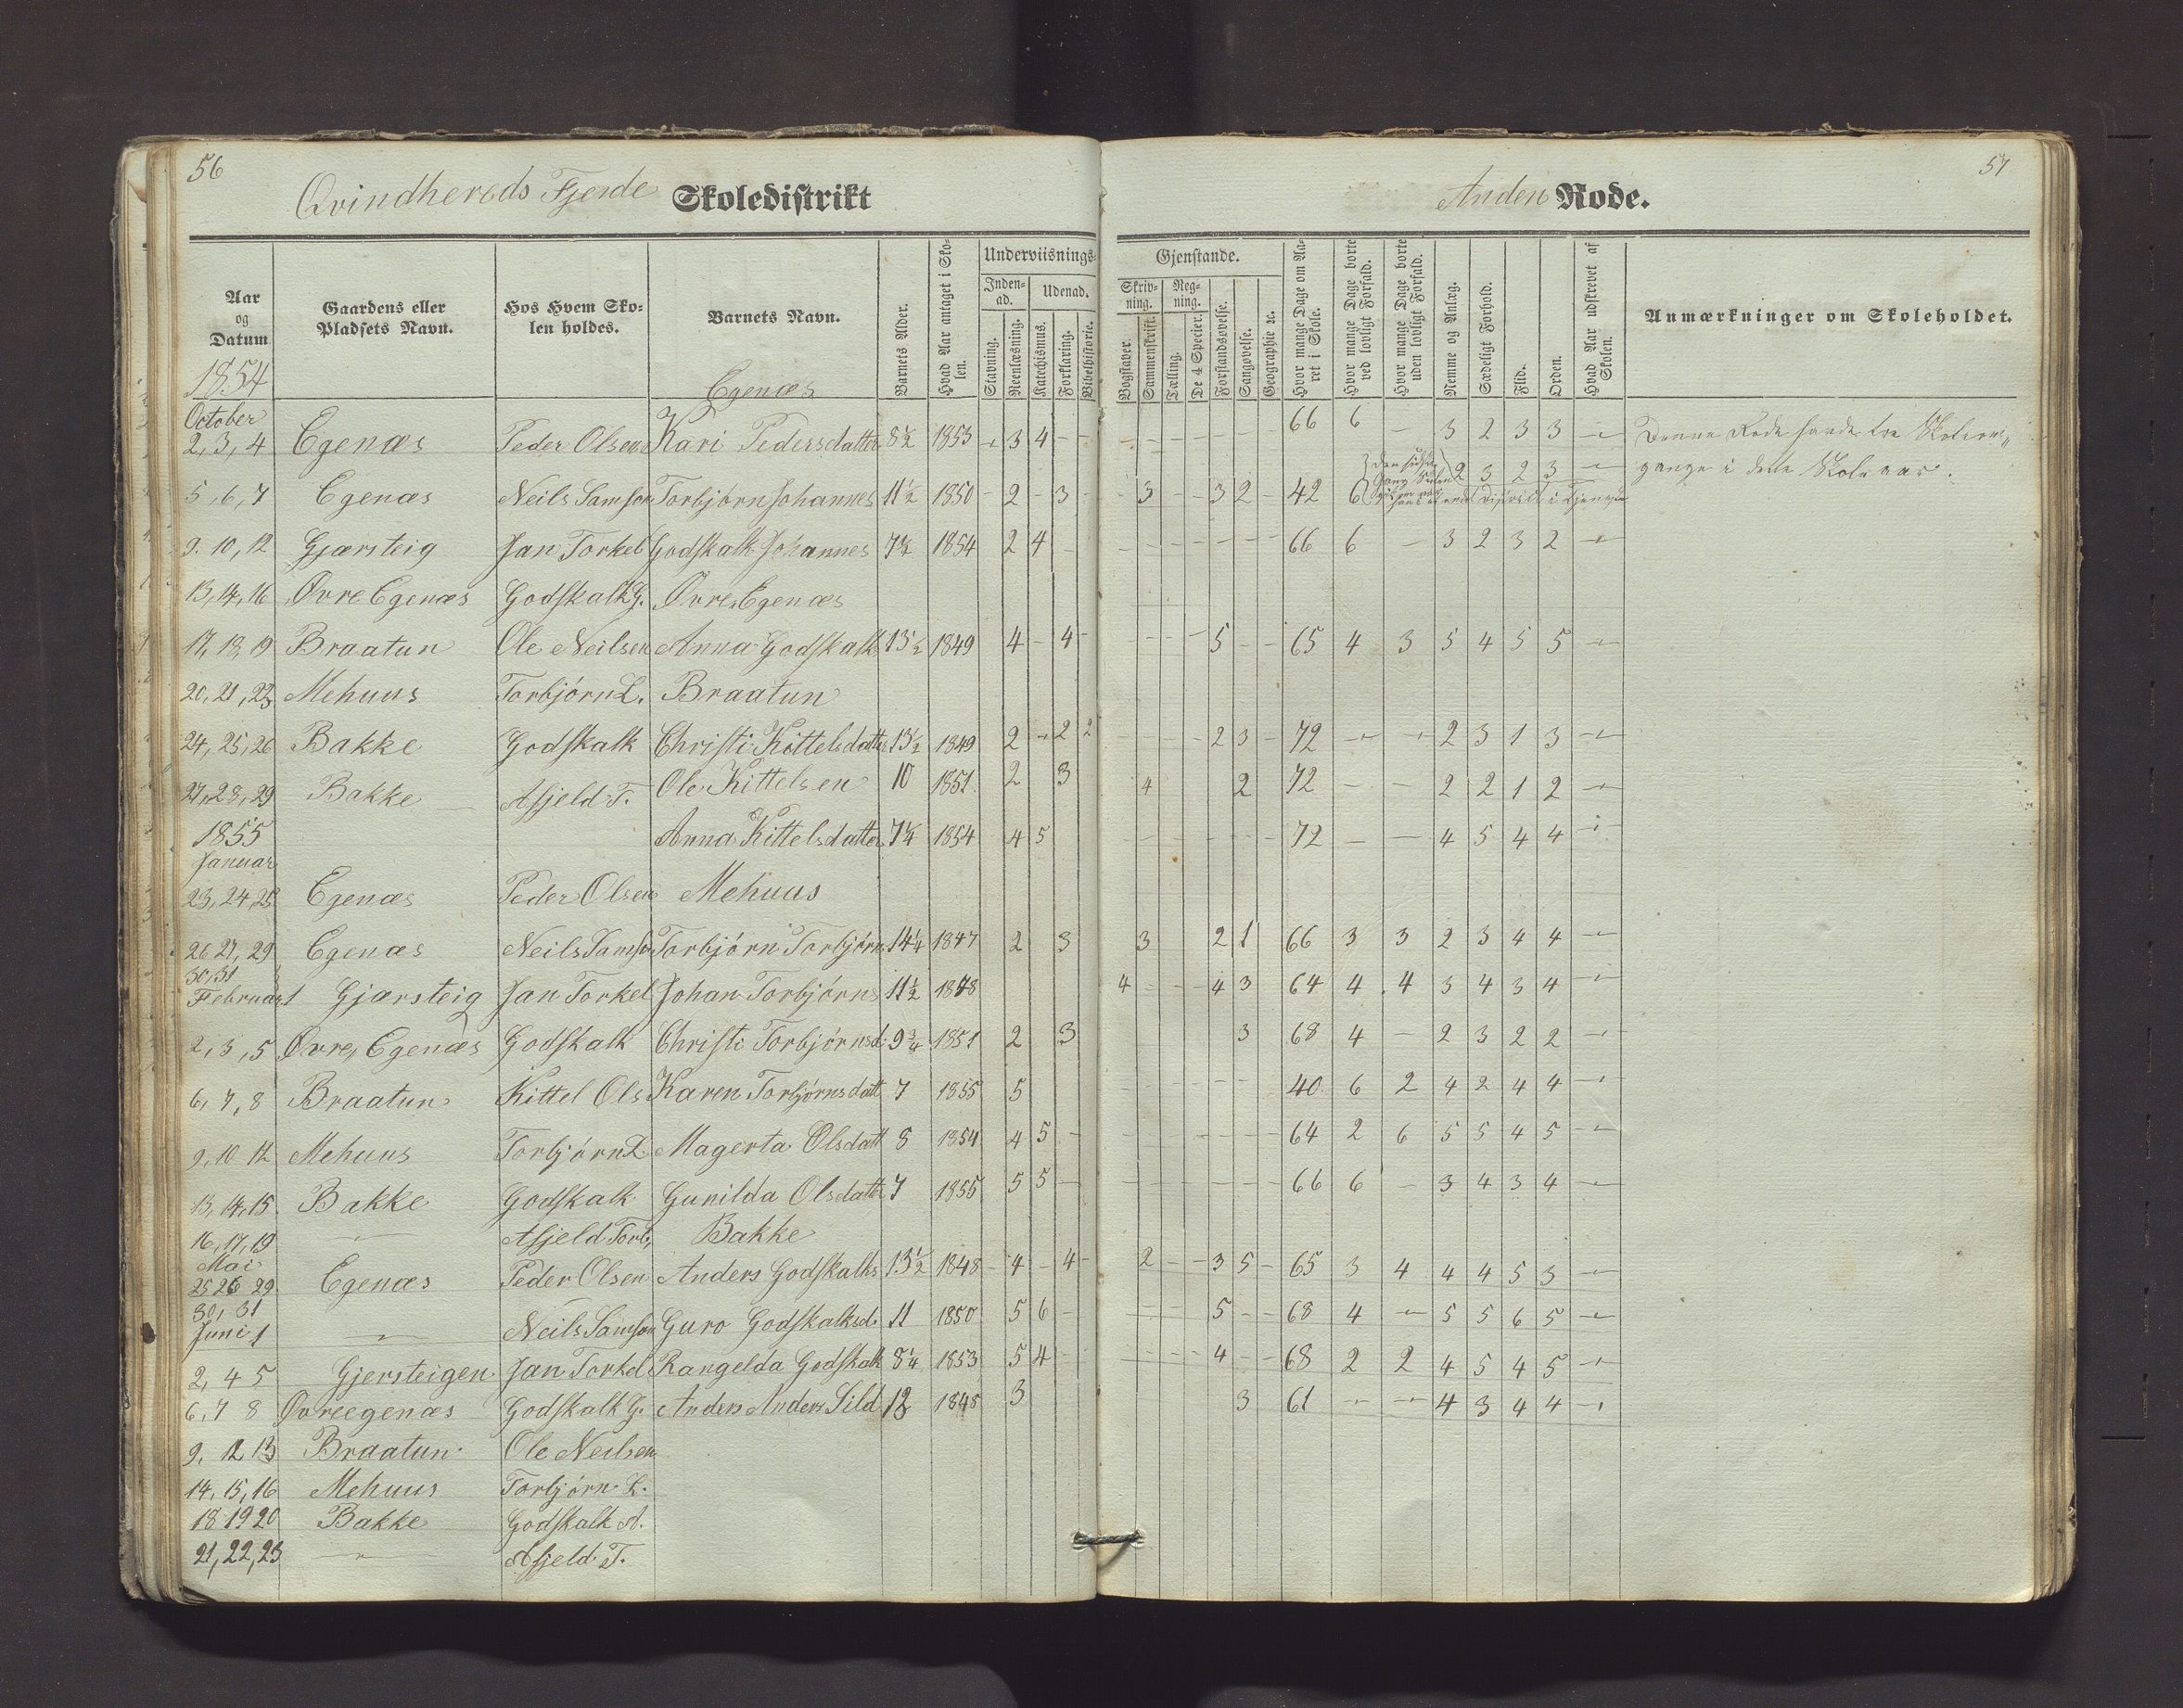 56
Qvindherods Fjerde Skoledistrikt
Aar og Datum
Gaardens eller Pladsets Navn.
Hos Hvem Skolen holdes.
Barnets Navn.
Barnets Alder.
Hvad Aar antaget i Skolen.
Underviisnings-
Indenad.
Udenad.
Stavning.
Reenlæsning.
Katechismus.
Forklaring.
Bibelhistorie.
1854 Egenæs
October
2, 3, 4 Egenæs Peder Olsen Kari Pedersdatter 8½ 1853 - 3 4 - -
5, 6, 7 Egenæs Neils Samson Torbjørn Johannes 11½ 1850 - 2 - 3 -
9. 10, 12 Gjærsteig Jan Torkel Godskalk Johannes 7½ 1854 2 4 -
13, 14, 16 Øvre Egenæs Godskalk G. Øvre Egenæs
17, 18, 19 Braatun Ole Neilsen Anna Godskalk 13½ 1849 4 - 4 -
20, 21, 23 Mehuus Torbjørn L. Braatun
24, 25, 26 Bakke Godskalk Christi Kittelsdatter 13½ 1849 2 - 2 2
27, 28, 29 Bakke Asjeld T. Ole Kittelsen 10 1851 2 3
1855 Anna Kittelsdatter 7¼ 1854 4 5
Januar
23, 24, 25 Egenæs Peder Olsen Mehuus
26 27, 29 Egenæs Neils Samson Torbjørn Torbjørns 14¼ 1847 2 3
30, 31
Februar 1 Gjærsteig Jan Torkel Johan Torbjørns 11½ 1848
2, 3, 5 Øvre Egenæs Godskalk Christi Torbjørnsd. 9¾ 1851 2 3
6, 7, 8 Braatun Kittel Ols Karen Torbjørnsdatt 7 1855 5
9, 10 12 Mehuus Torbjørn L Magerta Olsdatt 8 1854 4 5 -
13, 14, 15 Bakke Godskalk Gunilda Olsdatter 7 1855 5 5 -
16, 17, 19 -"- Asjeld Torb, Bakke
Mai
25 26 29 Egenæs Peder Olsen Anders Godskalks 13½ 1848 - 4 - 4 -
30, 31
Juni 1 -"- Neils Samson Guro Godskalksd. 11 1850 5 6 -
2, 4 5 Gjersteigen Jan Torkel Rangelda Godskalk 8¼ 1853 5 4 -
6, 7 8 Øvreegenæs Godskalk G. Anders Anders Sild 12 1848 3
9, 12 13 Braatun Ole Neilsen
14, 15, 16 Mehuus Torbjørn L.
18 19 20 Bakke Godskalk A.
21, 22, 23 -"- Asjeld T.
57
Anden Rode.
Gjenstande.
Skrivning.
Regning.
Bogstaver.
Sammenskrift.
Tælling.
De 4 Specier.
Forstandsøvelse.
Sangøvelse.
Geographie ec.
Hvor mange Dage om Aaret i Skole.
Hvor mange Dage borte ved lovligt Forfald.
Hvor mange Dage borte uden lovligt Forfald.
Nemme og Anlæg.
Sædeligt Forhold.
Flid.
Orden.
Hvad Aar udskrevet af Skolen.
Anmærkninger om Skoleholdet.
66 6 - 3 2 3 3 -"- Denne Rode havde tre Skoleom-
gange i dette Skoleaar.
3 - - 3 2 - 42 6 2 3 2 3 -"-
66 6 - 3 2 3 2 -"-
5 - - 65 4 3 5 4 5 5 -"-
2 3 - 72 -"- -"- 2 3 1 3 -"-
4 2 72 - - 2 2 1 2 -"-
72 - - 4 5 4 4 -"-
3 2 1 66 3 3 2 3 4 4 -"-
4 - - - 4 3 64 4 4 3 4 3 4 -"-
3 68 4 - 2 3 2 2 -"-
40 6 2 4 2 4 4 -"-
64 2 6 5 5 4 5 -"-
66 6 - 3 4 3 4 -"-
2 - - 3 5 - 65 3 4 4 4 5 3 -"-
5 - - 68 4 -"- 5 5 6 5 -"-
4 - - 68 2 2 4 5 4 5 -"-
3 61 -"- -"- 4 3 4 4 -"-